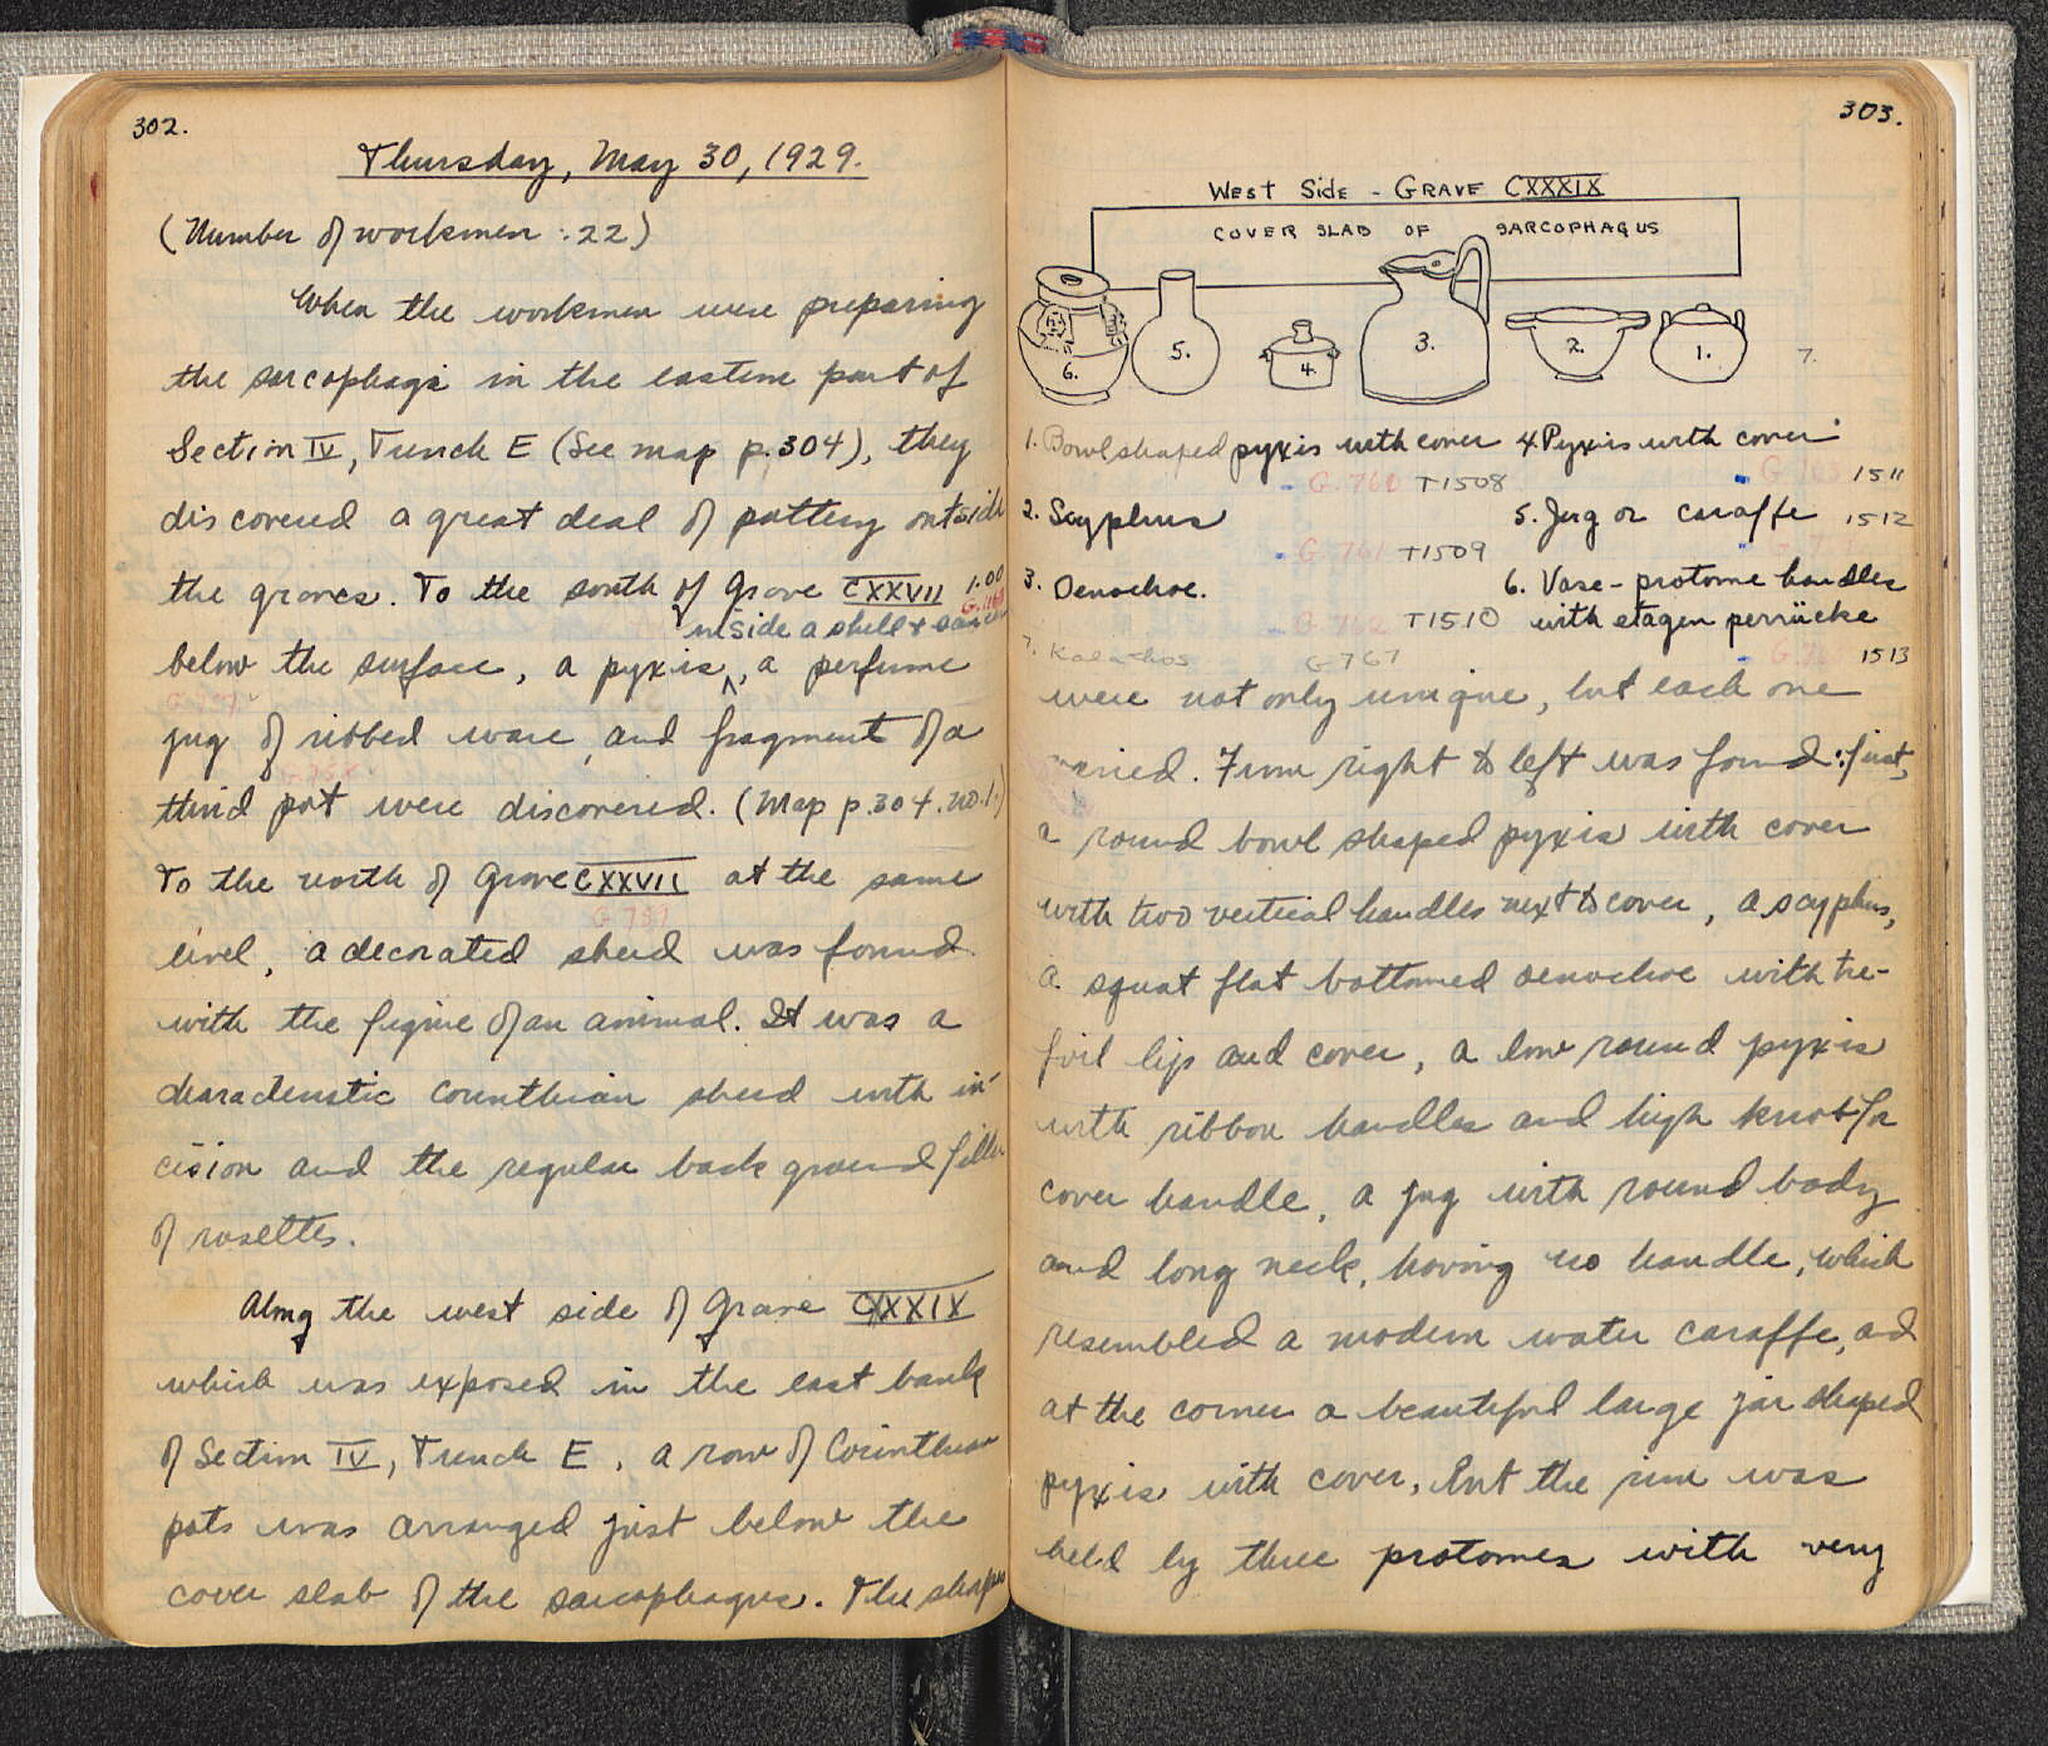 302.
Thursday, May 30, 1929.
(Number of workmen : 22)
When the workmen were preparing
the sarcophagi in the eastern part of
Section IV, Trench E (See map p. 304), they
discovered a great deal of pottery outside
the graves. To the south of Grave CXXVII 1.00
inside a shell +
below the surface, a pyxis ^, a perfume
jug of ribbed ware, and fragment of a
third pot were discovered. (Map p. 304. no. 1.)
To the north of Grave CXXVII at the same
G 759
level, a decorated sherd was found
with the figure of an animal. It was a
characteristic Corinthian sherd with in-
cision and the regular back ground filler
of rosettes.
Along the west side of Grave CXXXIX
which was exposed in the east bank
of Section IV, Trench E, a row of Corinthian
pots was arranged just below the
cover slab of the sarcophagus. The shapes
303.
WEST SIDE - GRAVE CXXXIX
COVER SLAB OF SARCOPHAGUS
6. 5. 4. 3. 2. 1. 7.
1. Bowl shaped pyxis with cover 4. Pyxis with cover
T1508 1511
2. Scyphus 5. Jug or caraffe 1512
G. 761 T1509
3. Oenochoe. 6. Vase - protome handles
G. 762 T1510 with etagen perrücke
7. Kalathos G 767 1513
were not only unique, but each one
varied. From right to left was found: first,
a round bowl shaped pyxis with cover
with two vertical handles next to cover, a scyphus,
a squat flat bottomed oenochoe with tre-
foil lip and cover, a low round pyxis
with ribbon handles and high knob for
cover handle, a jug with round body
and long neck, having no handle, which
resembled a modern water caraffe, ad
at the corner a beautiful large jar shaped
pyxis with cover, but the rim was
held by three protomes with very